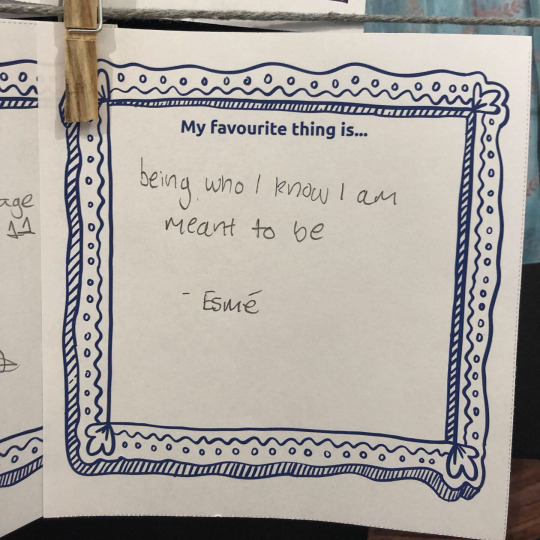 My favourite thing is...
being who I know I am
meant to be
- Esmé
age
11